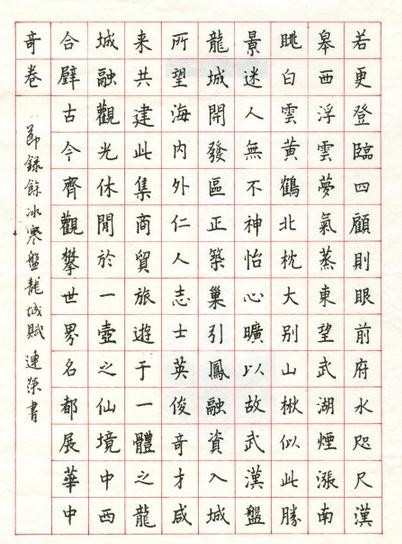 若更登臨四顧則眼前府水咫尺漢
皋西浮雲夢氣蒸東望武湖煙漲南
眺白雲黃鶴北枕大别山楸似此勝
景迷人無不神怡心曠以故武漢盤
龍城開發區正築巢引鳳融資入城
所望海内外仁人志士英俊奇才咸
来共建此集商貿旅遊于一體之龍
城融觀光休閒於一壺之仙境中西
合璧古今齊觀攀世界名都展華中
奇卷
節録餘冰寒盤龍城賦 連榮書